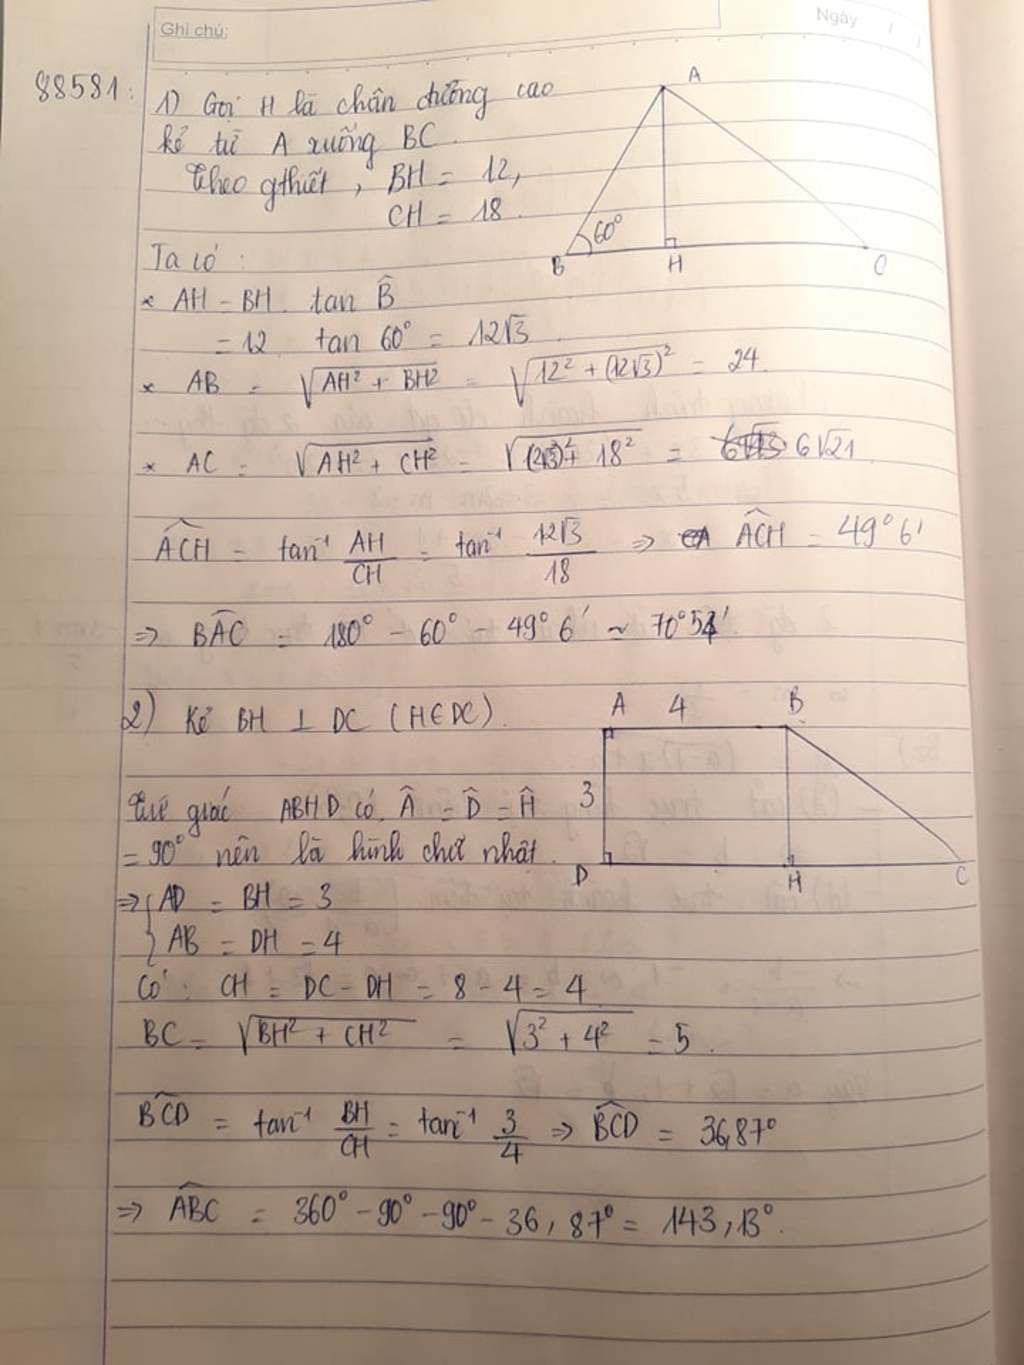 Ghi chú:
Ngày
88581:
1) Gọi H là chân đường cao
kẻ từ A xuống BC.
Theo gthiết, BH = 12,
CH = 18.
A
60°
B
H
C
Ta có:
* AH = BH. tan B̂
= 12 tan 60° = 12√3.
* AB = √(AH² + BH²) = √(12² + (12√3)²) = 24.
* AC = √(AH² + CH²) = √((12√3)² + 18²) = 6√21.
ACH = tan⁻¹ AH/CH = tan⁻¹ 12√3/18 ⇒ ACH = 49°6'
⇒ BAC = 180° - 60° - 49°6' ~ 70°54'
2) Kẻ BH ⊥ DC (H∈DC).
A 4 B
3
D
H
C
Tứ giác ABHD có Â = D̂ = Ĥ
= 90° nên là hình chữ nhật.
⇒ { AD = BH = 3
AB = DH = 4
Có: CH = DC - DH = 8 - 4 = 4
BC = √(BH² + CH²) = √(3² + 4²) = 5.
BCD = tan⁻¹ BH/CH = tan⁻¹ 3/4 ⇒ BCD = 36,87°
⇒ ABC = 360° - 90° - 90° - 36,87° = 143,13°.